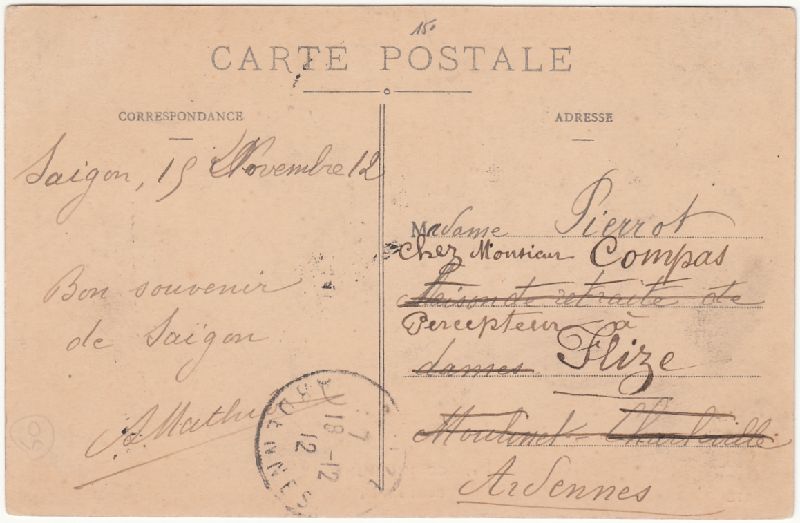 150
CARTE POSTALE
CORRESPONDANCE
Saigon, 15 Novembre 12
Bon souvenir
de Saïgon
AMathieu
ADRESSE
Madame Pierrot
chez Monsieur Compas
Maison de retraite de
Percepteur à
dames Flize
Moulinet - Charleville
Ardennes
ARDENNES
18-12
12
50